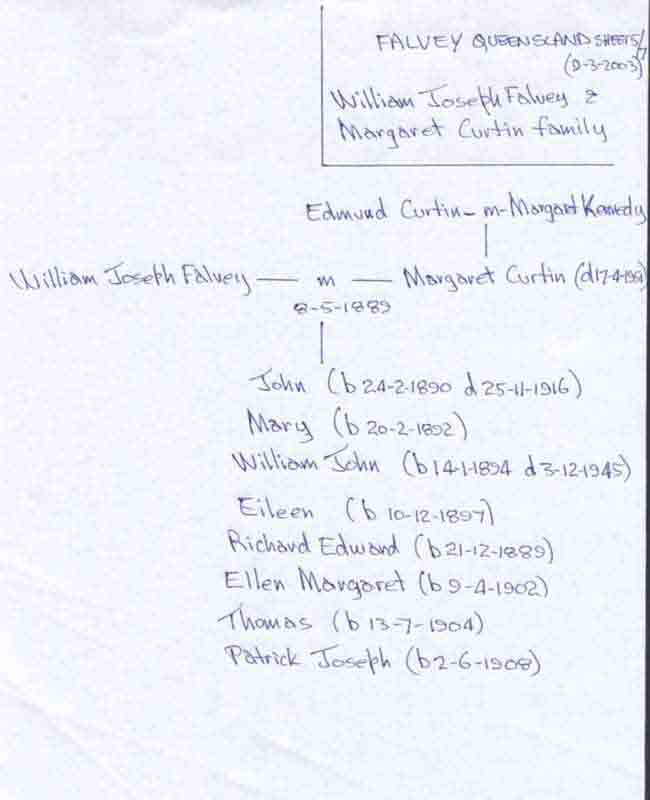 FALVEY QUEENSLAND SHEETS/7
(2-3-2003)
William Joseph Falvey &
Margaret Curtin family
Edmund Curtin - m - Margart Kennedy
William Joseph Falvey — m — Margaret Curtin (d17-4-
8-5-1889
John (b 24-2-1890 d 25-11-1916)
Mary (b 20-2-1892)
William John (b 14-1-1894 d 3-12-1945)
Eileen (b 10-12-1897)
Richard Edward (b 21-12-1889)
Ellen Margaret (b 9-4-1902)
Thomas (b 13-7-1904)
Patrick Joseph (b 2-6-1908)